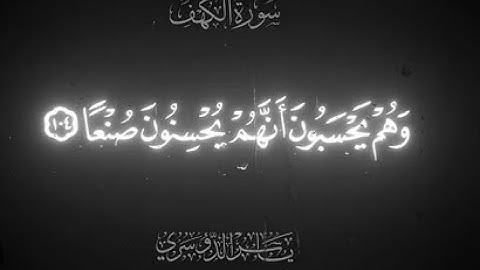 سورة الكهف
وَهُمْ يَحْسَبُونَ أَنَّهُمْ يُحْسِنُونَ صُنْعًا ١٠٤
ياسر الدوسري